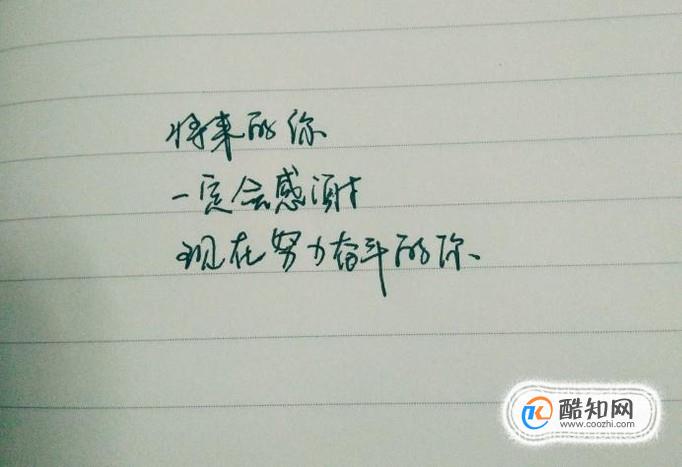 将来的你
一定会感谢
现在努力奋斗的你
酷知网
www.coozhi.com